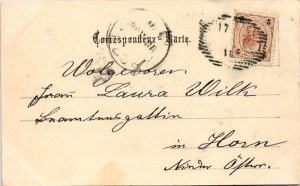 Correspondenz-Karte.
17
Wolgeboren
Frau Laura Wilk
Beamtensgattin
in Horn
Nieder Öster.